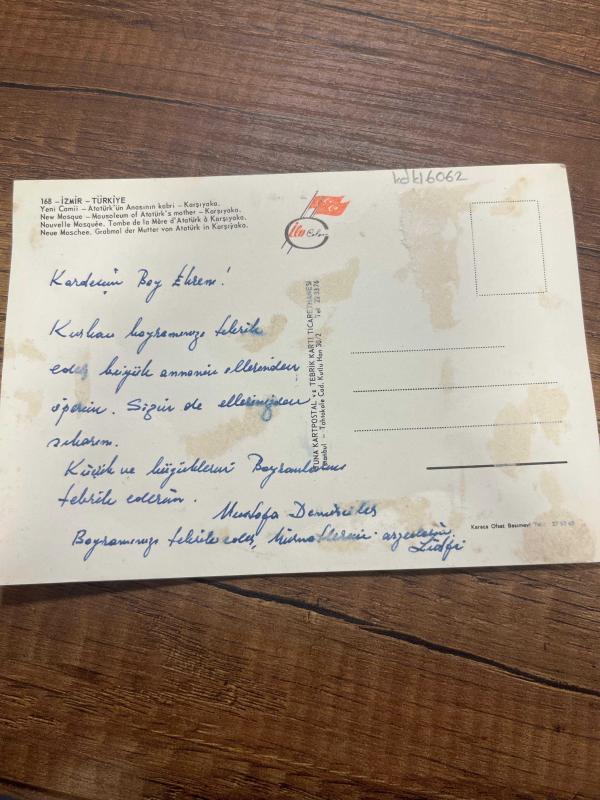 kdk16062
168 – İZMİR – TÜRKİYE
Yeni Camii – Atatürk'ün Anasının kabri – Karşıyaka.
New Mosque – Mausoleum of Atatürk's mother – Karşıyaka.
Nouvelle Mosquée. Tombe de la Mère d'Atatürk à Karşıyaka.
Neue Moschee. Grabmal der Mutter von Atatürk in Karşıyaka.
Kardeşim Bay Ekrem!
Kurban bayramınızı tebrik
eder büyük annemin ellerinden
öperim. Sizin de ellerinizden
sıkarım.
Küçük ve büyüklerin Bayramlarını
tebrik ederim.
Mustafa Demirciler
Bayramınızı tebrik eder, hürmetlerimi arzederim.
Lütfi
TUNA KARTPOSTAL ve TEBRİK KARTI TİCARETHANESİ
İstanbul – Tahtakale Cad. Kutlu Han 30/2 Tel:
Karaca Ofset Basımevi Tel: